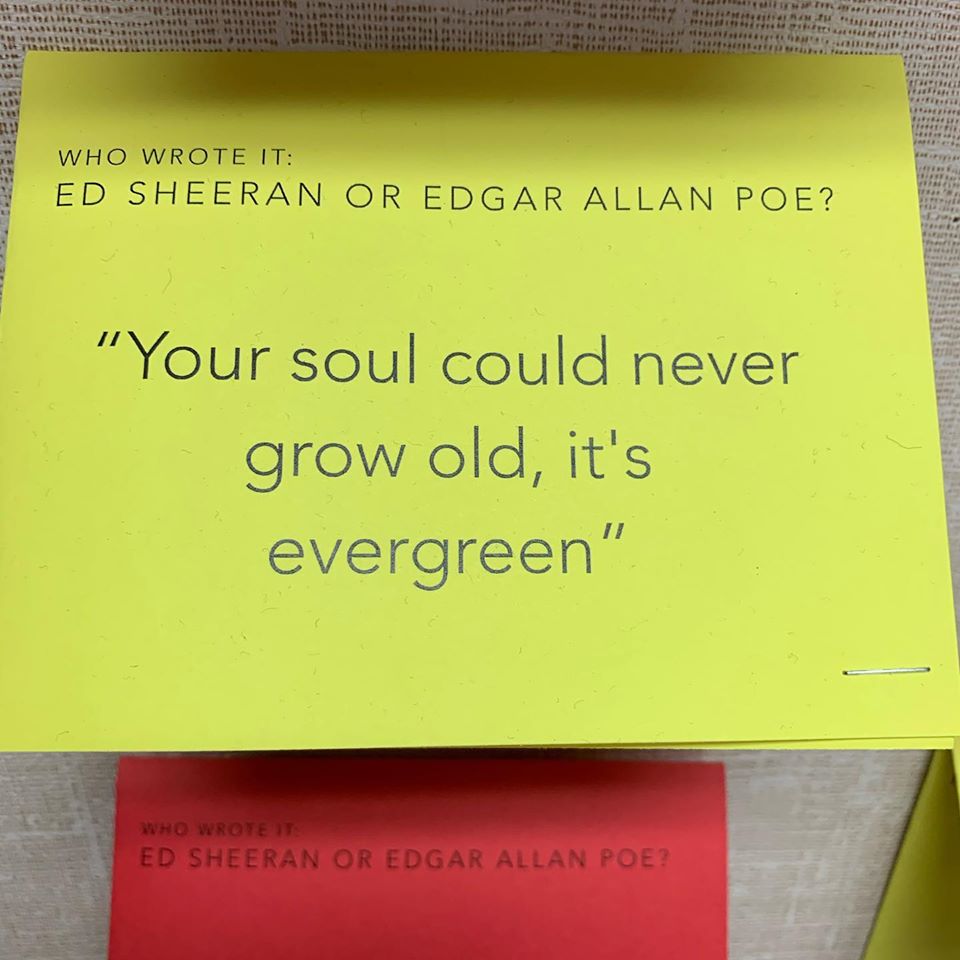 WHO WROTE IT:
ED SHEERAN OR EDGAR ALLAN POE?
“Your soul could never
grow old, it's
evergreen”
WHO WROTE IT:
ED SHEERAN OR EDGAR ALLAN POE?